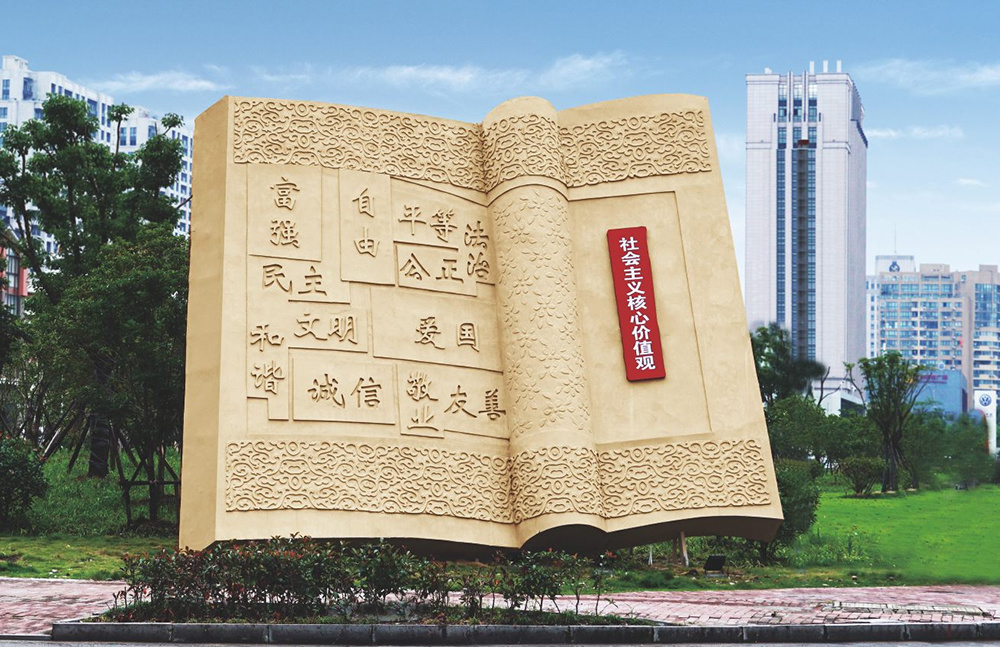 富强
自由
平等
公正
法治
民主
文明
和谐
爱国
诚信
敬业
友善
社会主义核心价值观